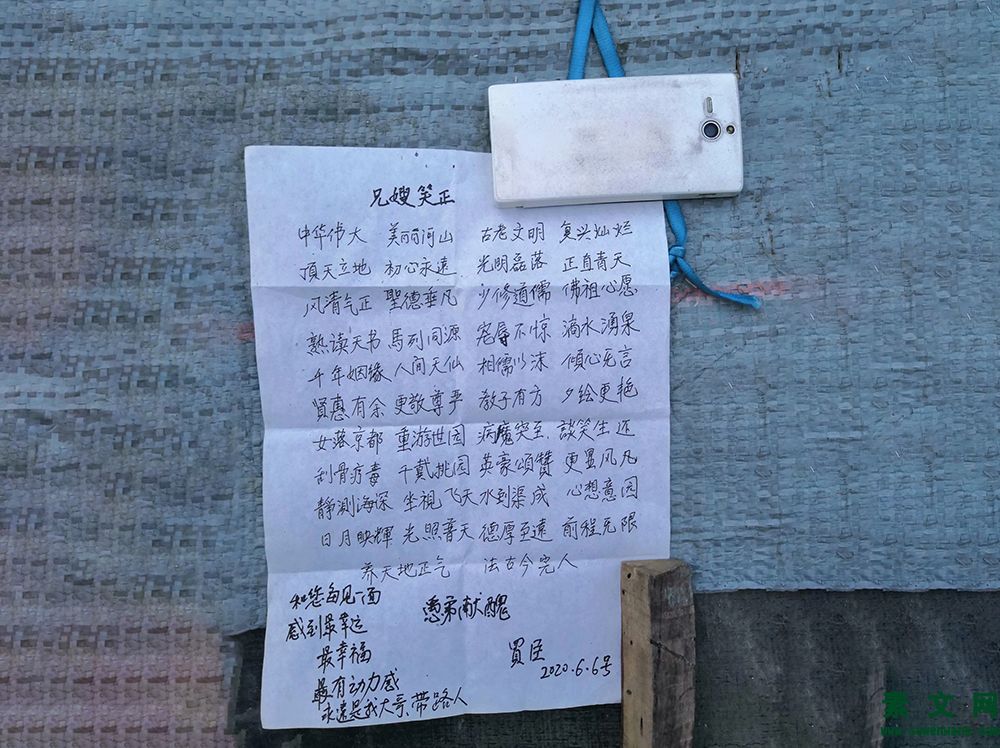 兄嫂笑正
中华伟大 美丽河山 古老文明 复兴灿烂
頂天立地 初心永遠 光明磊落 正直青天
风清气正 聖德垂凡 少修道儒 佛祖心愿
熟读天书 馬列同源 宠辱不惊 滴水湧泉
千年姻缘 人间天仙 相儒以沫 傾心无言
賢惠有余 更敬尊严 教子有方 夕绘更艳
女落京都 重游世园 病魔突至 談笑生还
刮骨疗毒 千戴桃园 英豪頌赞 更显风凡
靜測海深 坐視飞天 水到渠成 心想意园
日月映輝 光照普天 德厚至遠 前程无限
养天地正气 法古今完人
愚弟献醜
買臣
2020.6.6号
和您每见一面
感到最幸运
最幸福
最有动力感
永遠是我大哥、带路人
素文网